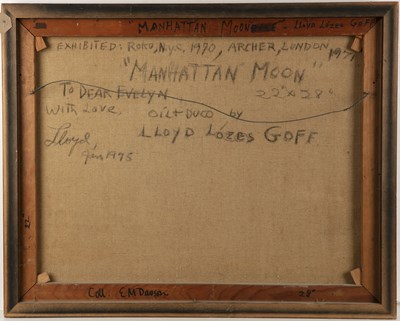 MANHATTAN MOON Lloyd Lózes Goff
EXHIBITED: ROKO, N.Y.C. 1970, ARCHER, LONDON 1971
"MANHATTAN MOON"
TO DEAR EVELYN 22" x 28"
With Love, OIL & DUCO by
Lloyd, LLOYD LÓZES GOFF
1975
Coll. E M
28"